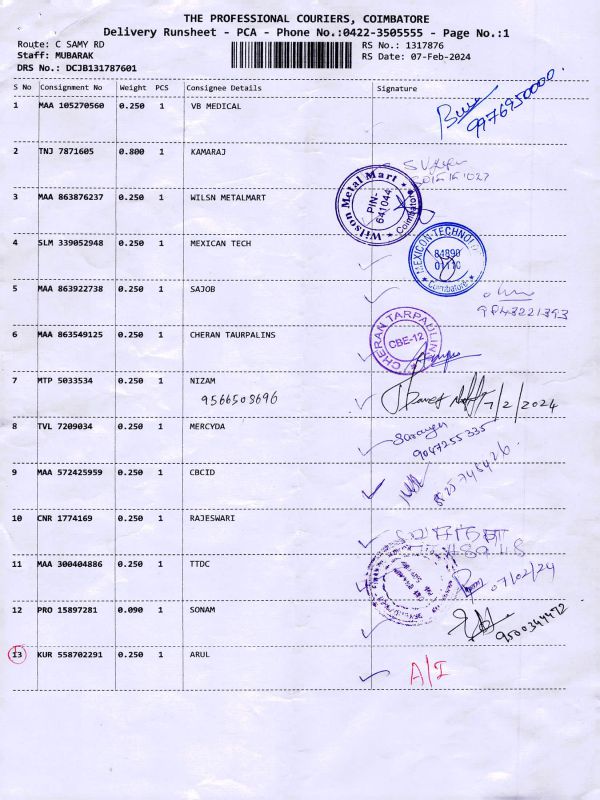 THE PROFESSIONAL COURIERS, COIMBATORE
Delivery Runsheet - PCA - Phone No.:0422-3505555 - Page No.:1
Route: C SAMY RD
RS No.: 1317876
Staff: MUBARAK
RS Date: 07-Feb-2024
DRS No.: DCJB131787601
S No Consignment No Weight PCS Consignee Details Signature
1 MAA 105270560 0.250 1 VB MEDICAL
9976950000.
2 TNJ 7871605 0.800 1 KAMARAJ
3 MAA 863876237 0.250 1 WILSN METALMART
Wilson Metal Mart
PIN-
641044
Coimbatore
4 SLM 339052948 0.250 1 MEXICAN TECH
MEXICON-TECHNOLO
Coimbatore
5 MAA 863922738 0.250 1 SAJOB
9843221393
6 MAA 863549125 0.250 1 CHERAN TAURPALINS
CHERAN TARPAULIN
CBE-12
7 MTP 5033534 0.250 1 NIZAM
9566508696
7/2/2024
8 TVL 7209034 0.250 1 MERCYDA
9047255335
9 MAA 572425959 0.250 1 CBCID
10 CNR 1774169 0.250 1 RAJESWARI
11 MAA 300404886 0.250 1 TTDC
07/02/24
12 PRO 15897281 0.090 1 SONAM
9500344472
13 KUR 558702291 0.250 1 ARUL
A/I